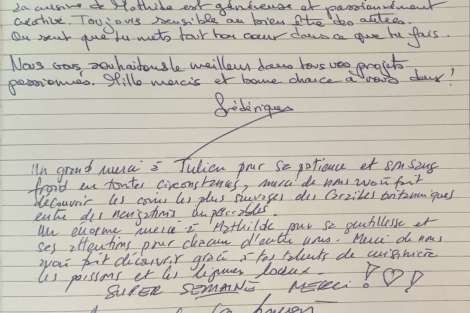 La cuisine de Mathilde est généreuse et passionnément
créative. Toujours sensible au bien être des autres.
On sent que tu mets tout ton coeur dans ce que tu fais.
Nous vous souhaitons le meilleur dans tous vos projets
passionnés. Mille mercis et bonne chance à vous deux !
Frédérique
Un grand merci à Julien pour sa patience et son sang
froid en toutes circonstances, merci de nous avoir fait
découvrir les coins les plus sauvages des Caraïbes britanniques
entre des navigations impeccables.
Un énorme merci à Mathilde pour sa gentillesse et
ses attentions pour chacun d'entre nous. Merci de nous
avoir fait découvrir grâce à tes talents de cuisinière
les poissons et les légumes locaux.
SUPER SEMAINE MERCI !